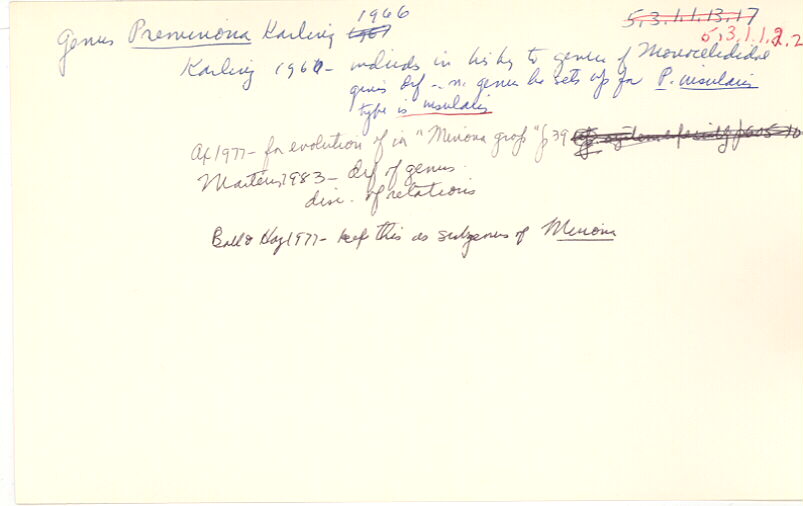 1966
Genus Preminona Karling 1967
5.3.1.1.13.17
5.3.1.1.2.2
Karling 1966 - includes in his key to genera of Monocelididae
gives def - n. genus he sets up for P. insularis
type is insularis
Ax 1977 - for evolution of in "Minona group" p 39
Martens 1983 - def of genus
disc. of relations
Ball & Hay 1977 - keep this as subgenus of Minona